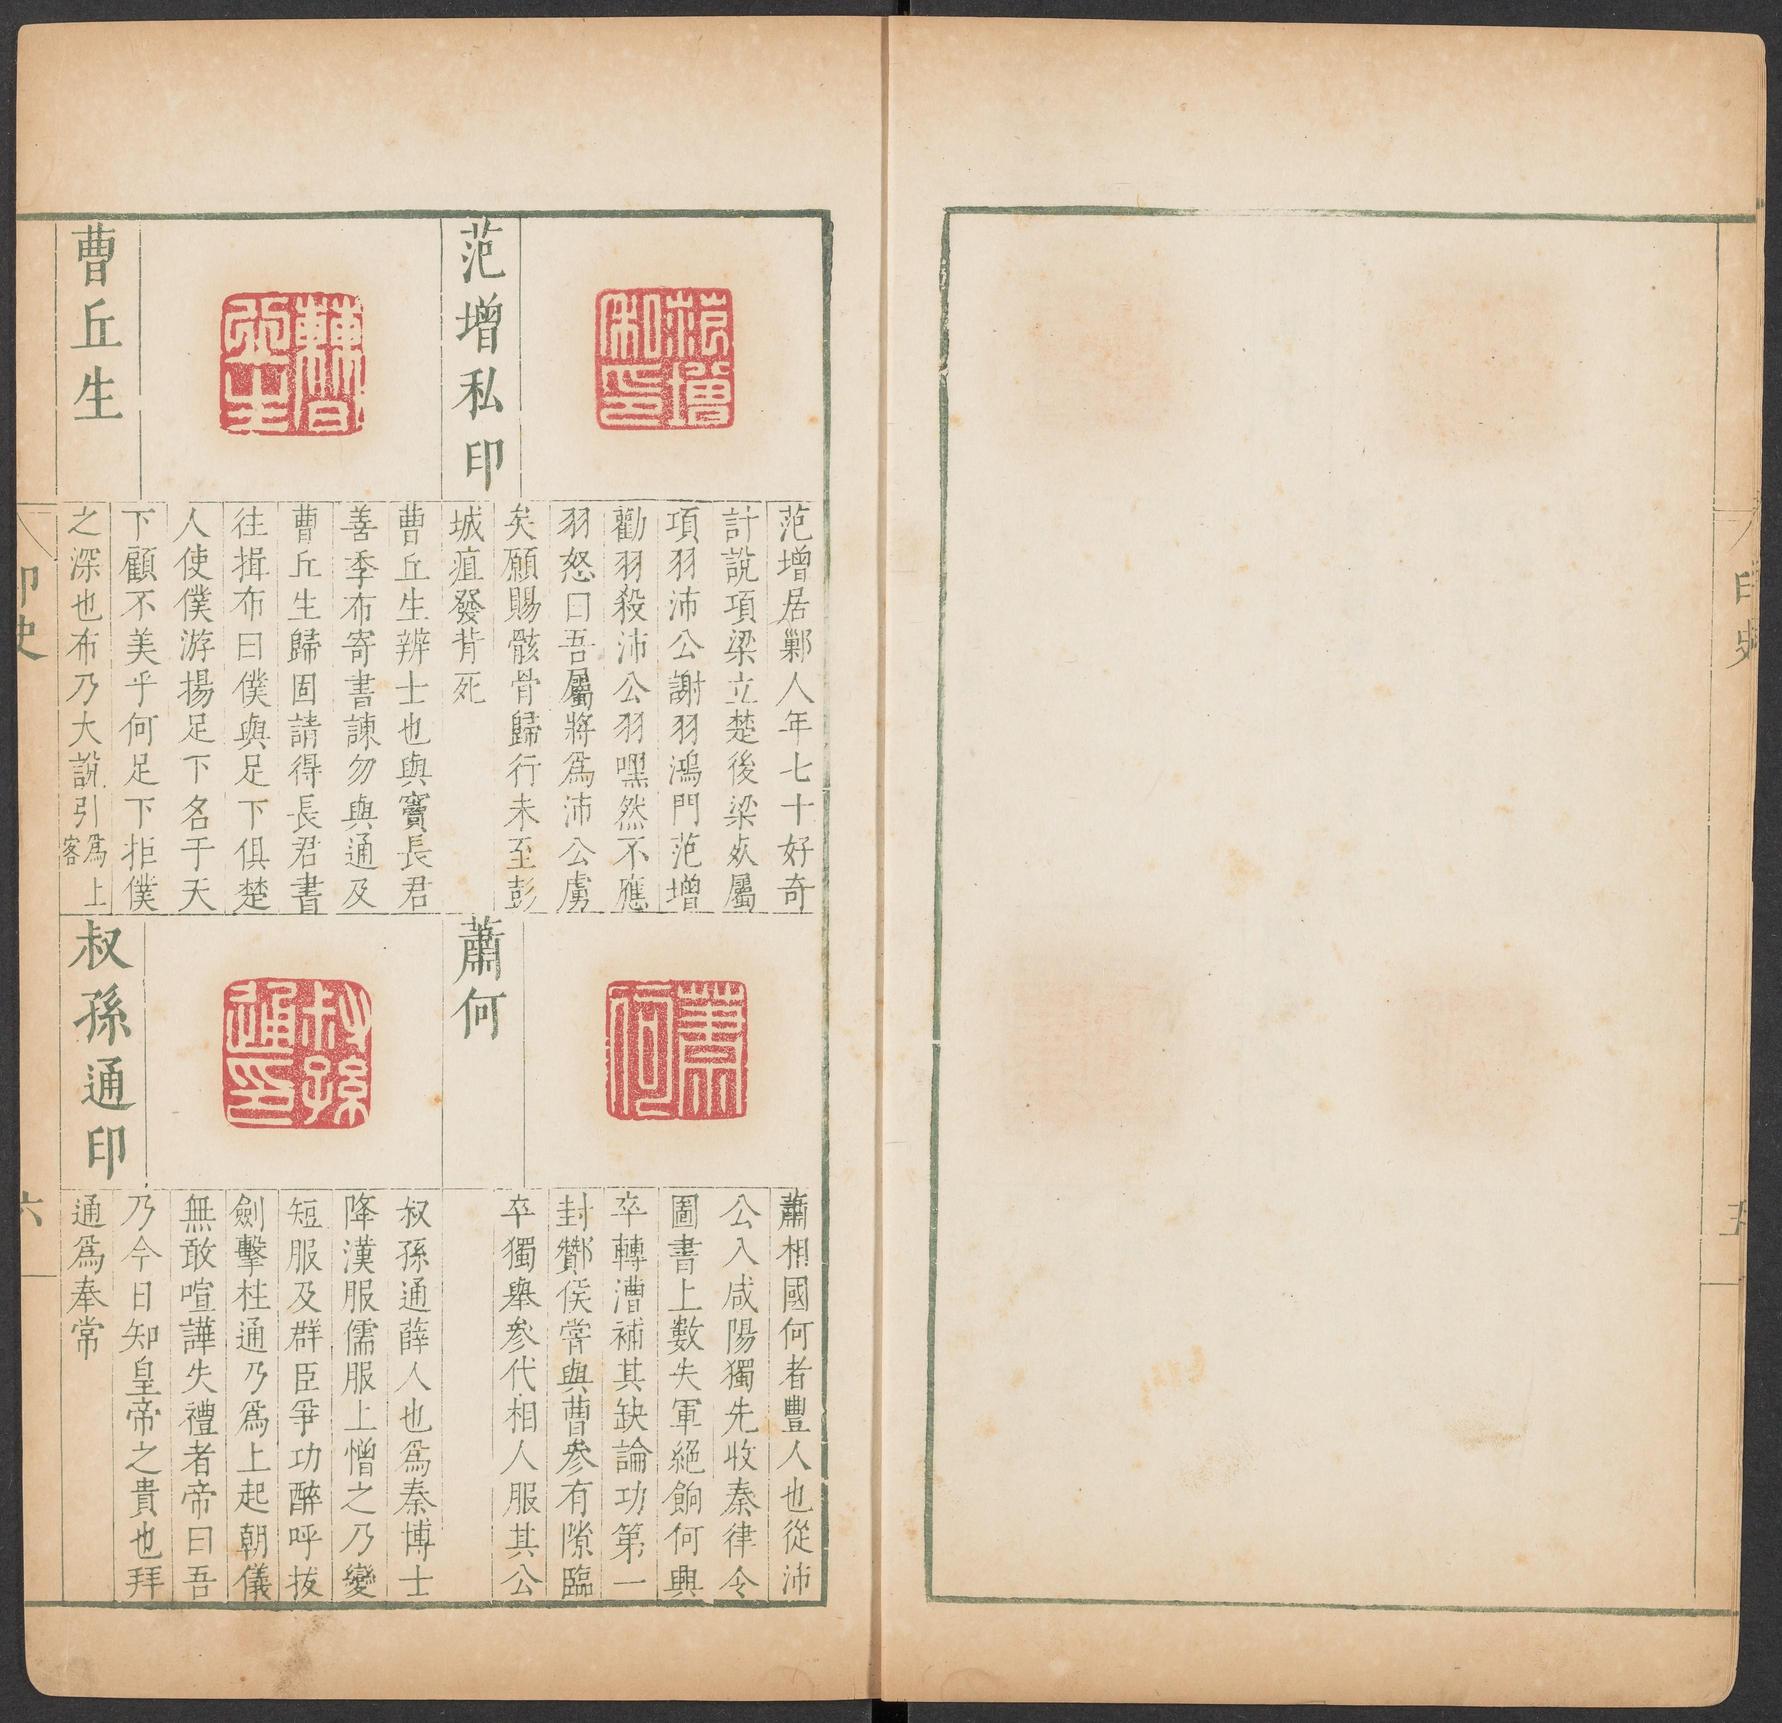 印史
范增私印
范增居鄛人年七十好奇
計說項梁立楚後梁死屬
項羽沛公謝羽鴻門范增
勸羽殺沛公羽嘿然不應
羽怒曰吾屬將爲沛公虜
矣願賜骸骨歸行未至彭
城疽發背死
曹丘生
曹丘生辨士也與竇長君
善季布寄書諫勿與通及
曹丘生歸固請得長君書
往揖布曰僕與足下俱楚
人使僕游揚足下名于天
下顧不美乎何足下拒僕
之深也布乃大說引爲上客
蕭何
蕭相國何者豐人也從沛
公入咸陽獨先收秦律令
圖書上數失軍絕餉何興
卒轉漕補其缺論功第一
封酇侯嘗與曹參有隙臨
卒獨舉參代相人服其公
叔孫通印
叔孫通薛人也爲秦博士
降漢服儒服上憎之乃變
短服及群臣爭功醉呼拔
劍擊柱通乃爲上起朝儀
無敢喧譁失禮者帝曰吾
乃今日知皇帝之貴也拜
通爲奉常
印史
六